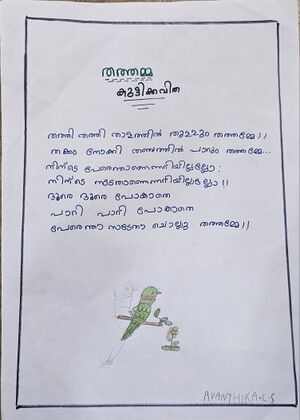 തത്തമ്മ
കുട്ടിക്കവിത
തത്തി തത്തി താളത്തിൽ തുള്ളും തത്തമ്മേ!!
തക്കം നോക്കി തഞ്ചത്തിൽ പാറും തത്തമ്മേ...
നിന്റെ പേരെന്താണെന്നറിയില്ലല്ലോ:
നിന്റെ നാടേതാണെന്നറിയില്ലല്ലോ !!
ദൂരെ ദൂരെ പോകാതെ
പാറി പാറി പോകാതെ
പേരെന്താ നാടേതാ ചൊല്ലൂ തത്തമ്മേ!!
AVANTHIKA.C.S